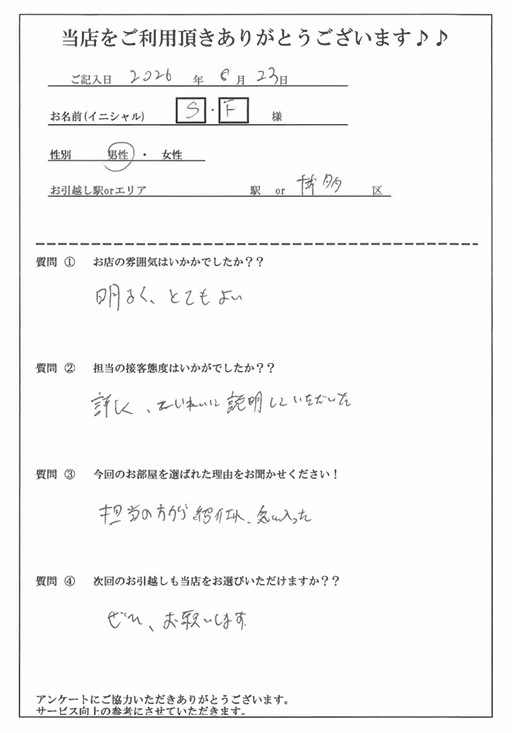 当店をご利用頂きありがとうございます♪♪
ご記入日 2026 年 6 月 23 日
お名前(イニシャル) S ・ F 様
性別 男性 ・ 女性
お引越し駅orエリア 駅 or 博多 区
質問 ① お店の雰囲気はいかかでしたか??
明るく、とてもよい
質問 ② 担当の接客態度はいかがでしたか??
詳しく、ていねいに説明していただいた
質問 ③ 今回のお部屋を選ばれた理由をお聞かせください!
担当の方から紹介され、気に入った
質問 ④ 次回のお引越しも当店をお選びいただけますか??
ぜひ、お願いします
アンケートにご協力いただきありがとうございます。
サービス向上の参考にさせていただきます。